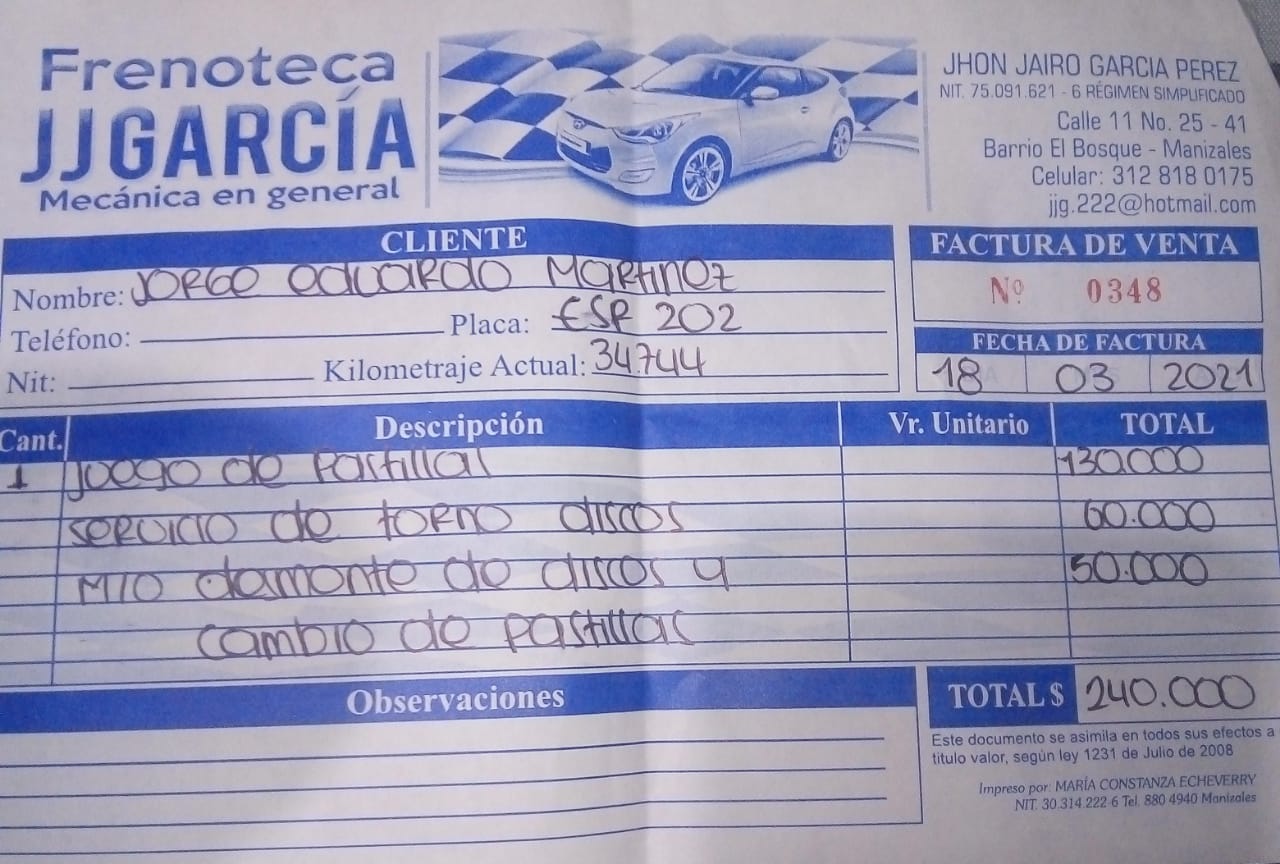 Frenoteca
JJGARCÍA
Mecánica en general
JHON JAIRO GARCIA PEREZ
NIT. 75.091.621 - 6 RÉGIMEN SIMPLIFICADO
Calle 11 No. 25 - 41
Barrio El Bosque - Manizales
Celular: 312 818 0175
jjg.222@hotmail.com
CLIENTE
Nombre: Jorge eduardo Martinez
Teléfono: Placa: ESR 202
Nit: Kilometraje Actual: 34.744
FACTURA DE VENTA
Nº 0348
FECHA DE FACTURA
18 03 2021
Cant. Descripción Vr. Unitario TOTAL
1 Juego de Pastillas 130.000
servicio de torno discos 60.000
M/O desmonte de discos y 50.000
cambio de pastillas
Observaciones
TOTAL $ 240.000
Este documento se asimila en todos sus efectos a
titulo valor, según ley 1231 de Julio de 2008
Impreso por: MARÍA CONSTANZA ECHEVERRY
NIT. 30.314.222-6 Tel. 880 4940 Manizales